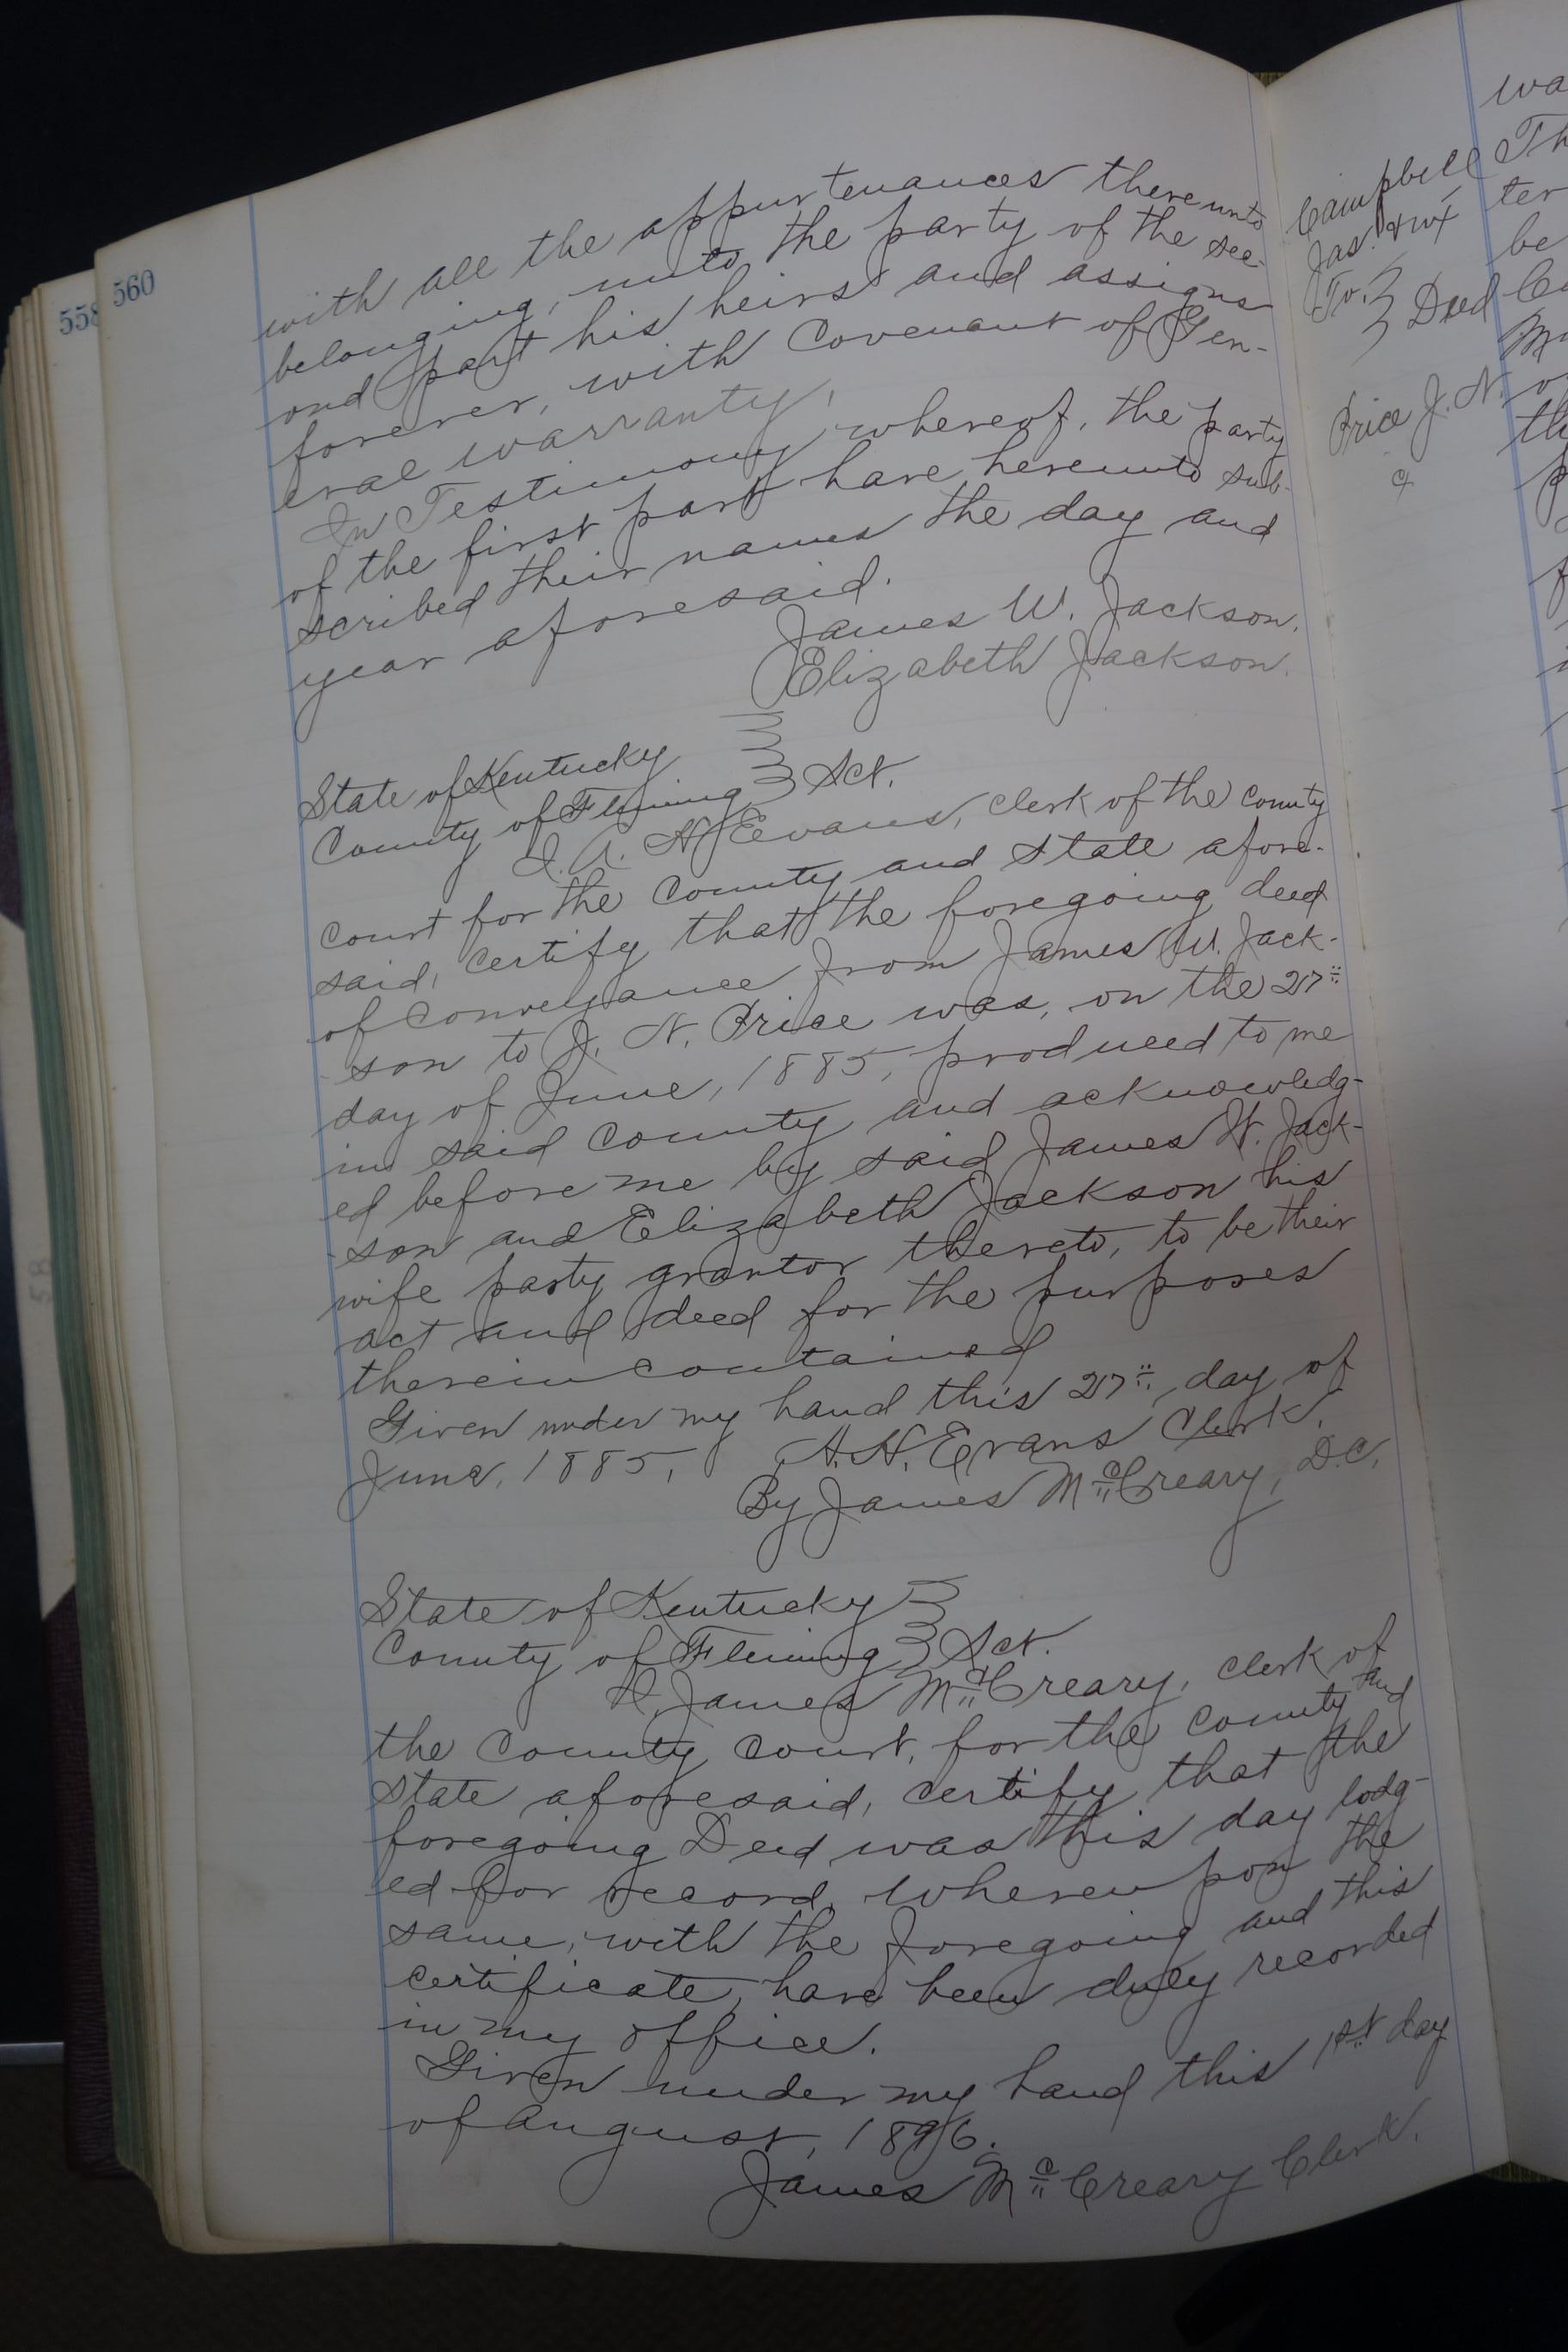 558
560
with all the appurtenances thereunto
belonging, unto the party of the sec-
ond part his heirs and assigns
forever, with Covenant of Gen-
eral warranty.
In Testimony whereof, the party
of the first part have hereunto sub-
scribed their names the day and
year aforesaid.
James W. Jackson.
Elizabeth Jackson.
State of Kentucky
County of Fleming } Sct.
I. A. H. Evans, clerk of the county
court for the county and state afore-
said, certify that the foregoing deed
of conveyance from James W. Jack-
son to J. N. Price was, on the 27"
day of June, 1885, produced to me
in said county and acknowledg-
ed before me by said James W. Jack-
son and Elizabeth Jackson his
wife party grantor thereto, to be their
act and deed for the purposes
therein contained
Given under my hand this 27" day of
June, 1885, A. H. Evans Clerk.
By James McCreary, D.C.
State of Kentucky
County of Fleming } Sct.
I, James McCreary, clerk of
the County court, for the county and
state aforesaid, certify that the
foregoing Deed was this day lodg-
ed for record, whereupon the
same, with the foregoing and this
certificate, have been duly recorded
in my office.
Given under my hand this 1st day
of August, 1896.
James McCreary Clerk.
Campbell
Jas. & wf
To. } Deed
Price J. N.